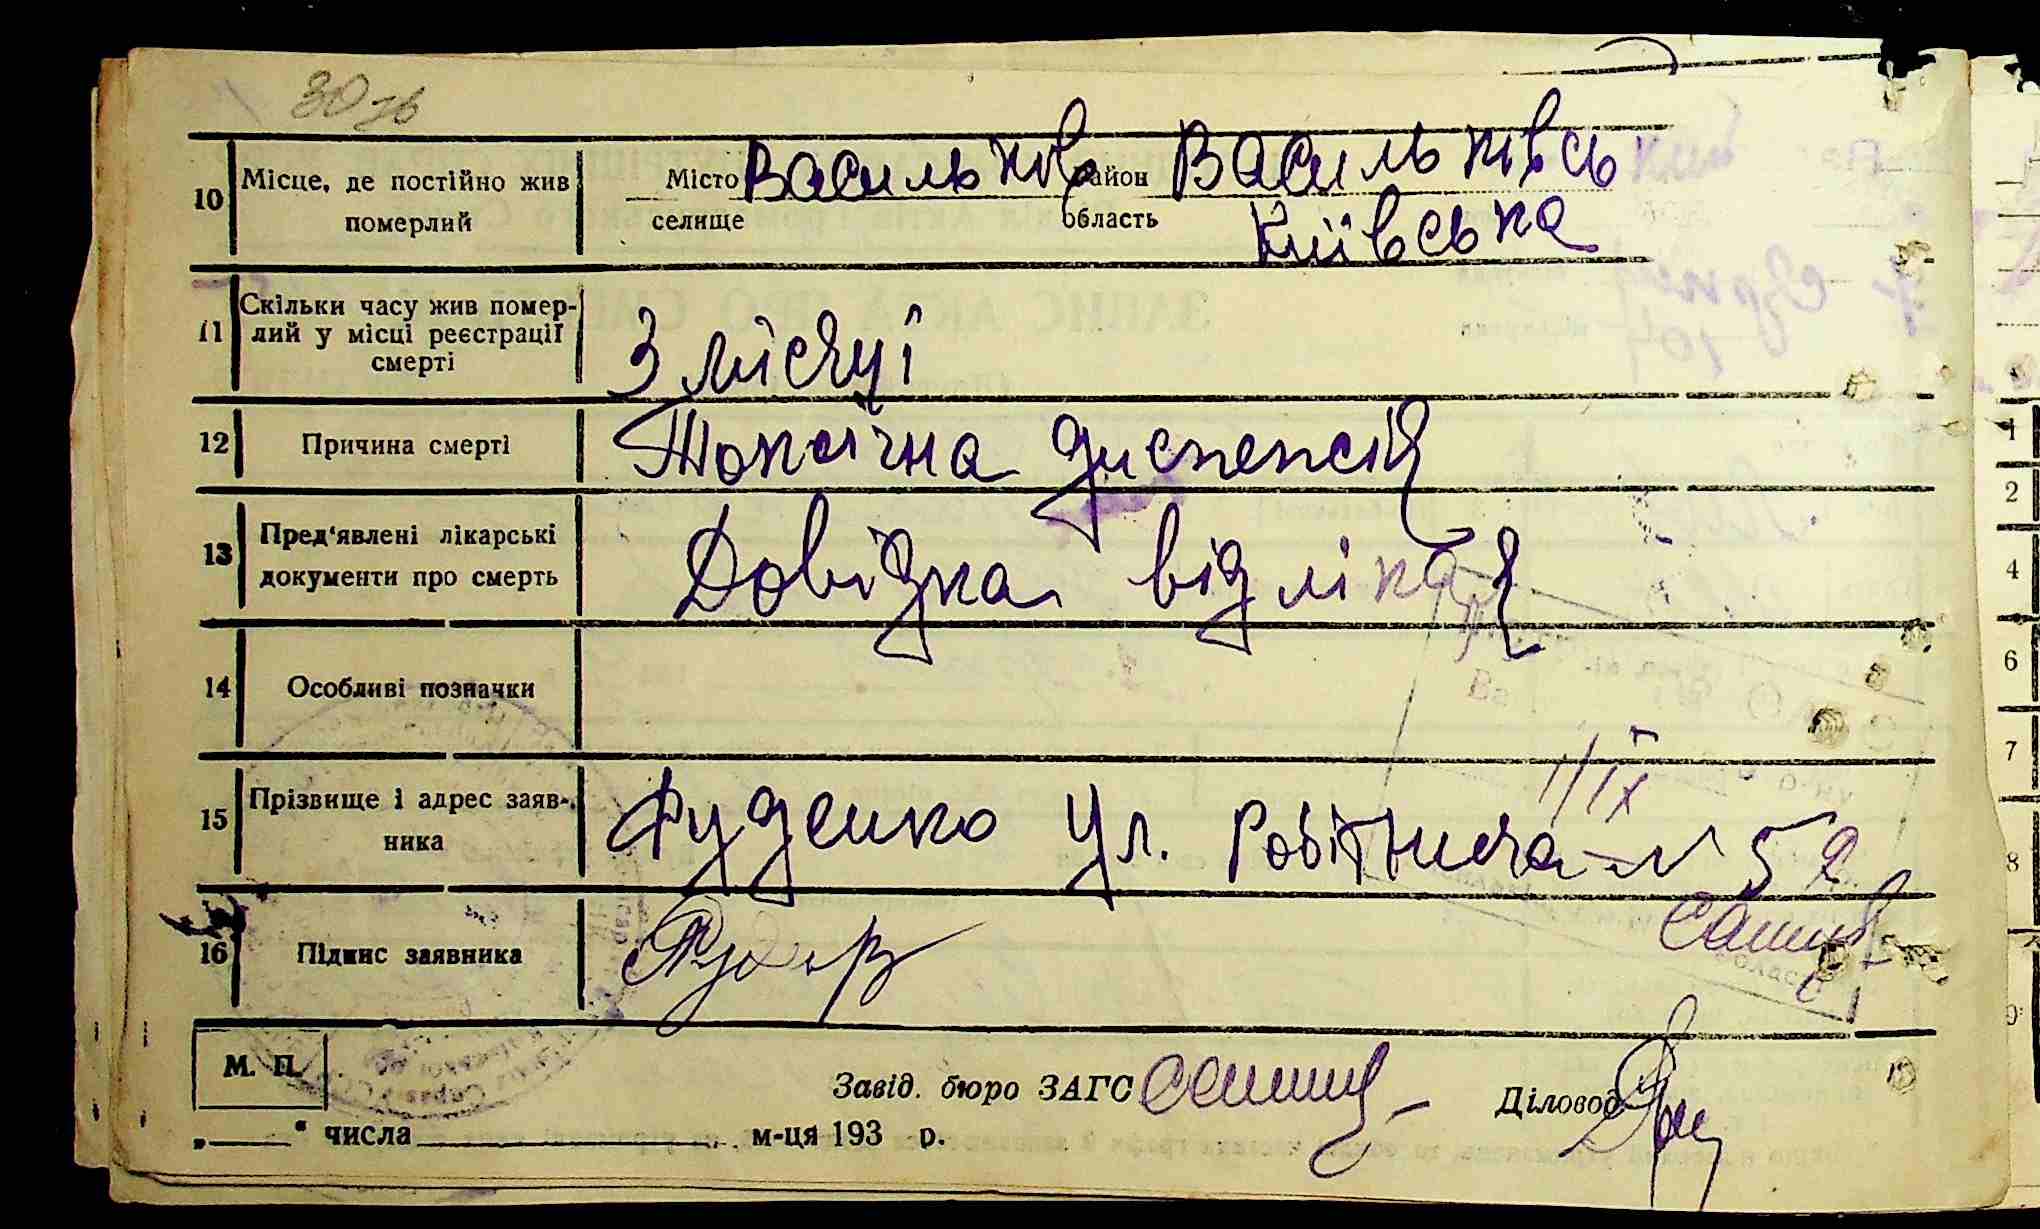 30 зв
10 Місце, де постійно жив померлий Місто селище Васильков район Васильківсь
область Київська
11 Скільки часу жив помер-
лий у місці реєстрації
смерті 3 місяці
12 Причина смерті Токсична диспепсія
13 Пред'явлені лікарські
документи про смерть Довідка від лікая
14 Особливі позначки
1/IX
15 Прізвище і адрес заяв-
ника Руденко Ул. Робітнича № 52
16 Підпис заявника
М. П.
Завід. бюро ЗАГС Діловод
„ " числа м-ця 193 р.
1
2
4
6
7
8
9